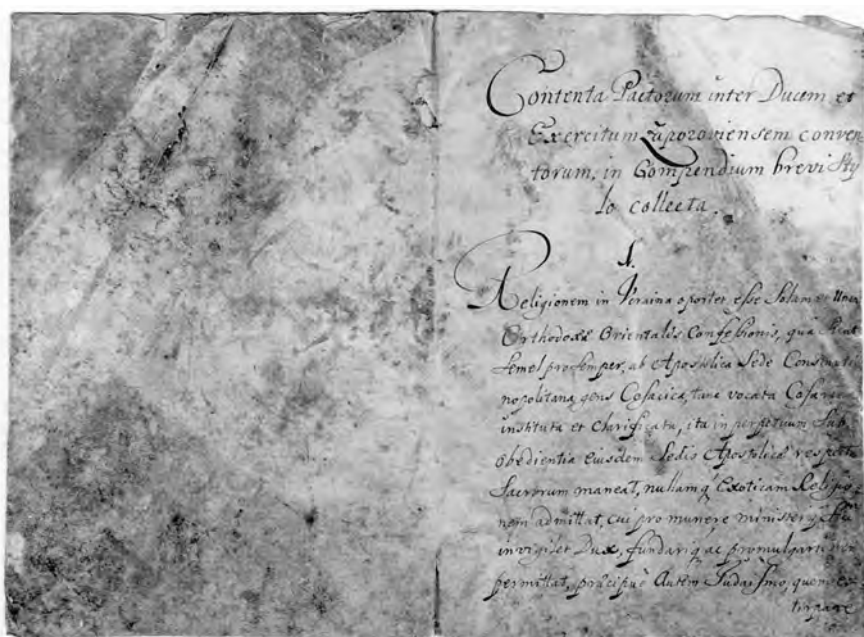 Contenta Pactorum inter Ducem et
Exercitum Zaporoviensem conven
torum, in Compendium brevi Sty
lo collecta.
1.
Religionem in Ucraina oportet esse Solam et Unam
Orthodoxæ Orientalis Confessionis, quâ Sicut
Semel pro semper, ab Apostolica Sede Constanti
nopolitana, gens Cosacica, tunc vocata
instituta et clarificata, ita in perpetuum Sub
obedientia eiusdem Sedis Apostolicæ respectu
Sacrorum maneat, nullamq́ Exoticam Religio
nem admittat, cui pro munere ministerij Sui
invigilet Dux, fundariq́ ac promulgari non
permittat, præcipuè Autem Judaismo, quem ex
tirpare